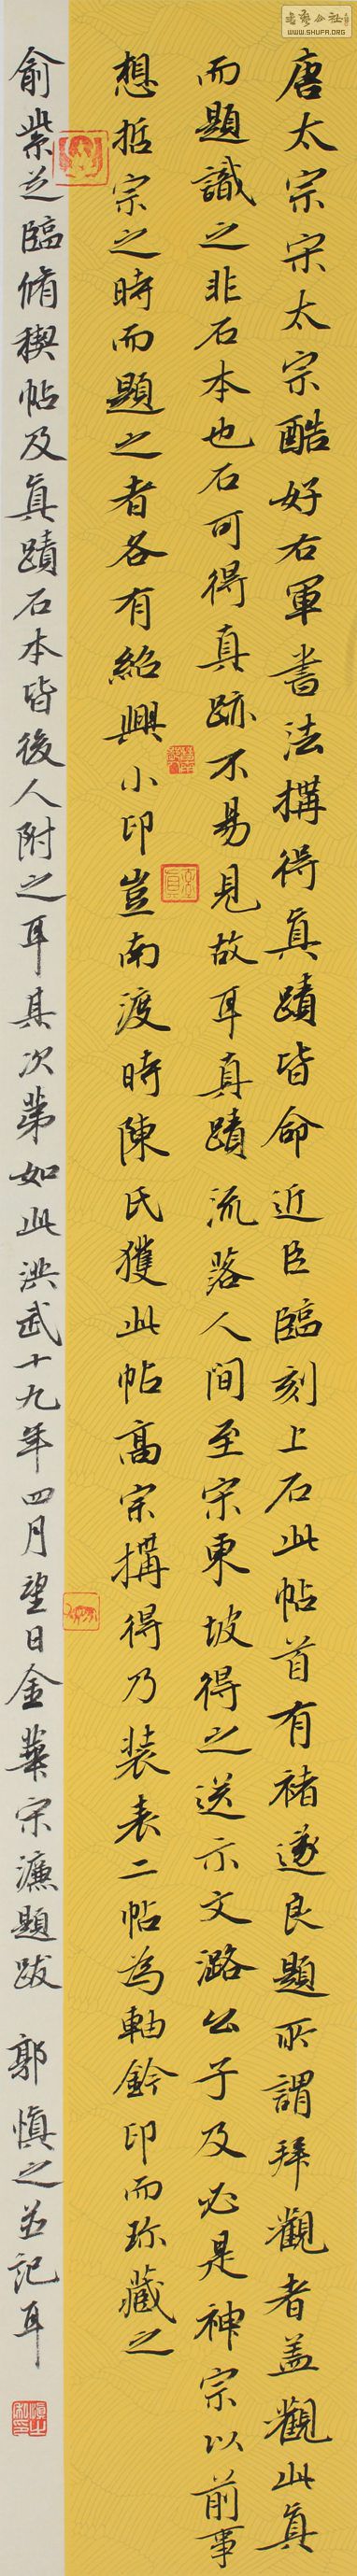 唐太宗宋太宗酷好右軍書法搆得真蹟皆命近臣臨刻上石此帖首有褚遂良題所謂拜觀者盖觀此真
而題識之非石本也石可得真跡不易見故耳真蹟流落人间至宋東坡得之送示文潞公子及必是神宗以前事
想哲宗之時而題之者各有紹興小印豈南渡時陳氏獲此帖高宗搆得乃装表二帖為軸鈐印而珎藏之
俞紫芝臨脩稧帖及真蹟石本皆後人附之耳其次第如此洪武十九年四月望日金華宋濂題跋 郭慎之並記耳
书学公社
WWW.SHUFA.ORG